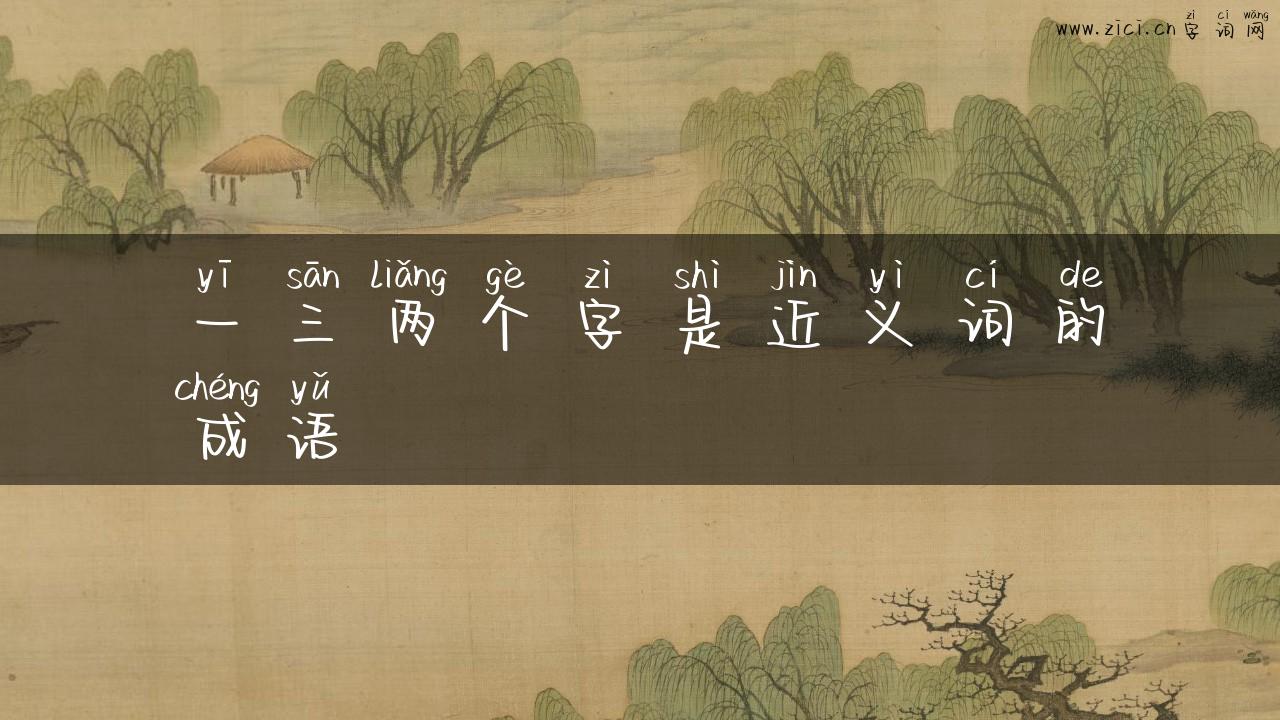 zì cí wǎng
www.zici.cn 字词网
yī sān liǎng gè zì shì jìn yì cí de
一三两个字是近义词的
chéng yǔ
成语